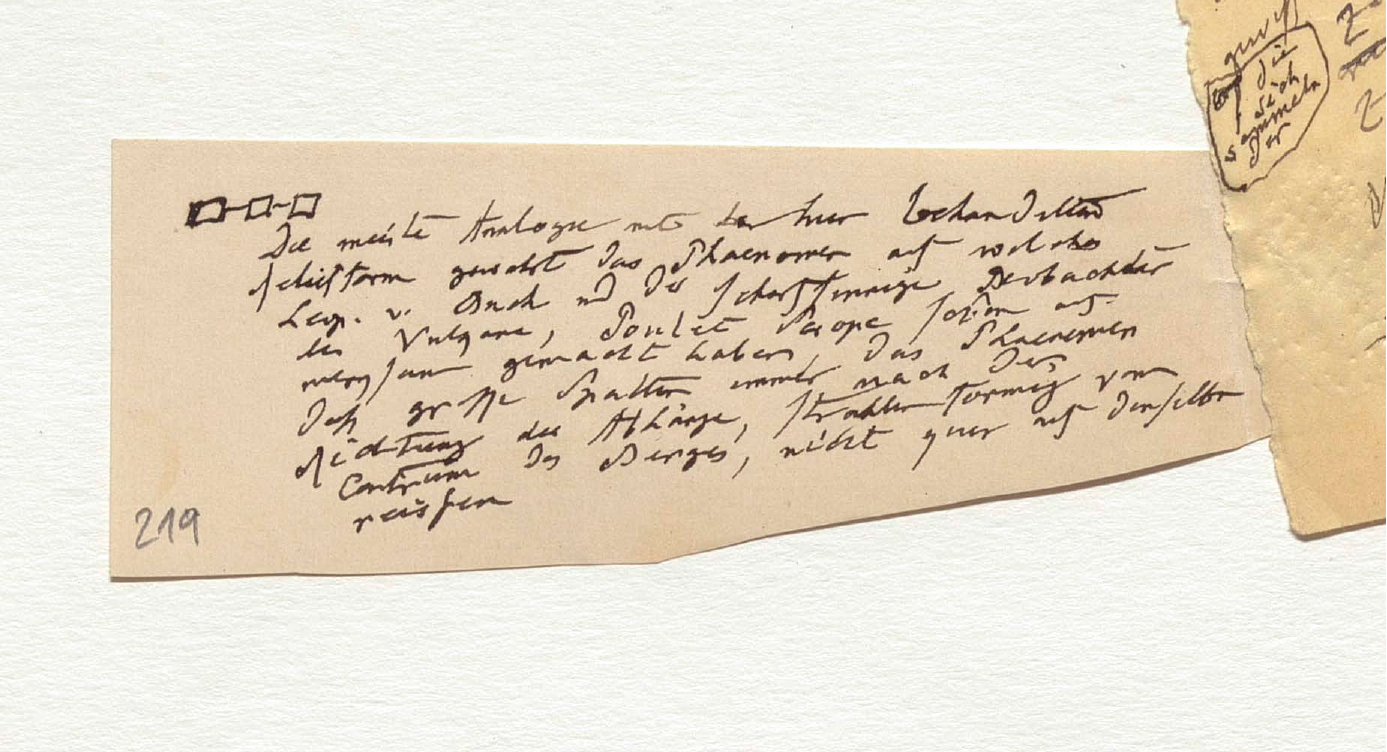 gewiß
die
sich
sammeln
der
Die meiste Analogie mit der hier behandelten
gewährt das Phaenomen auf welches
Leop. v. Buch und der scharfsinnige Beobachter
der Vulgane, Poulet Scrope schon auf-
merksam gemacht haben, das Phaenomen
daß große Spalten immer nach der
Richtung des Abhangs, strahlenförmig vom
Centrum des Berges, nicht quer auf denselben
reißen
219